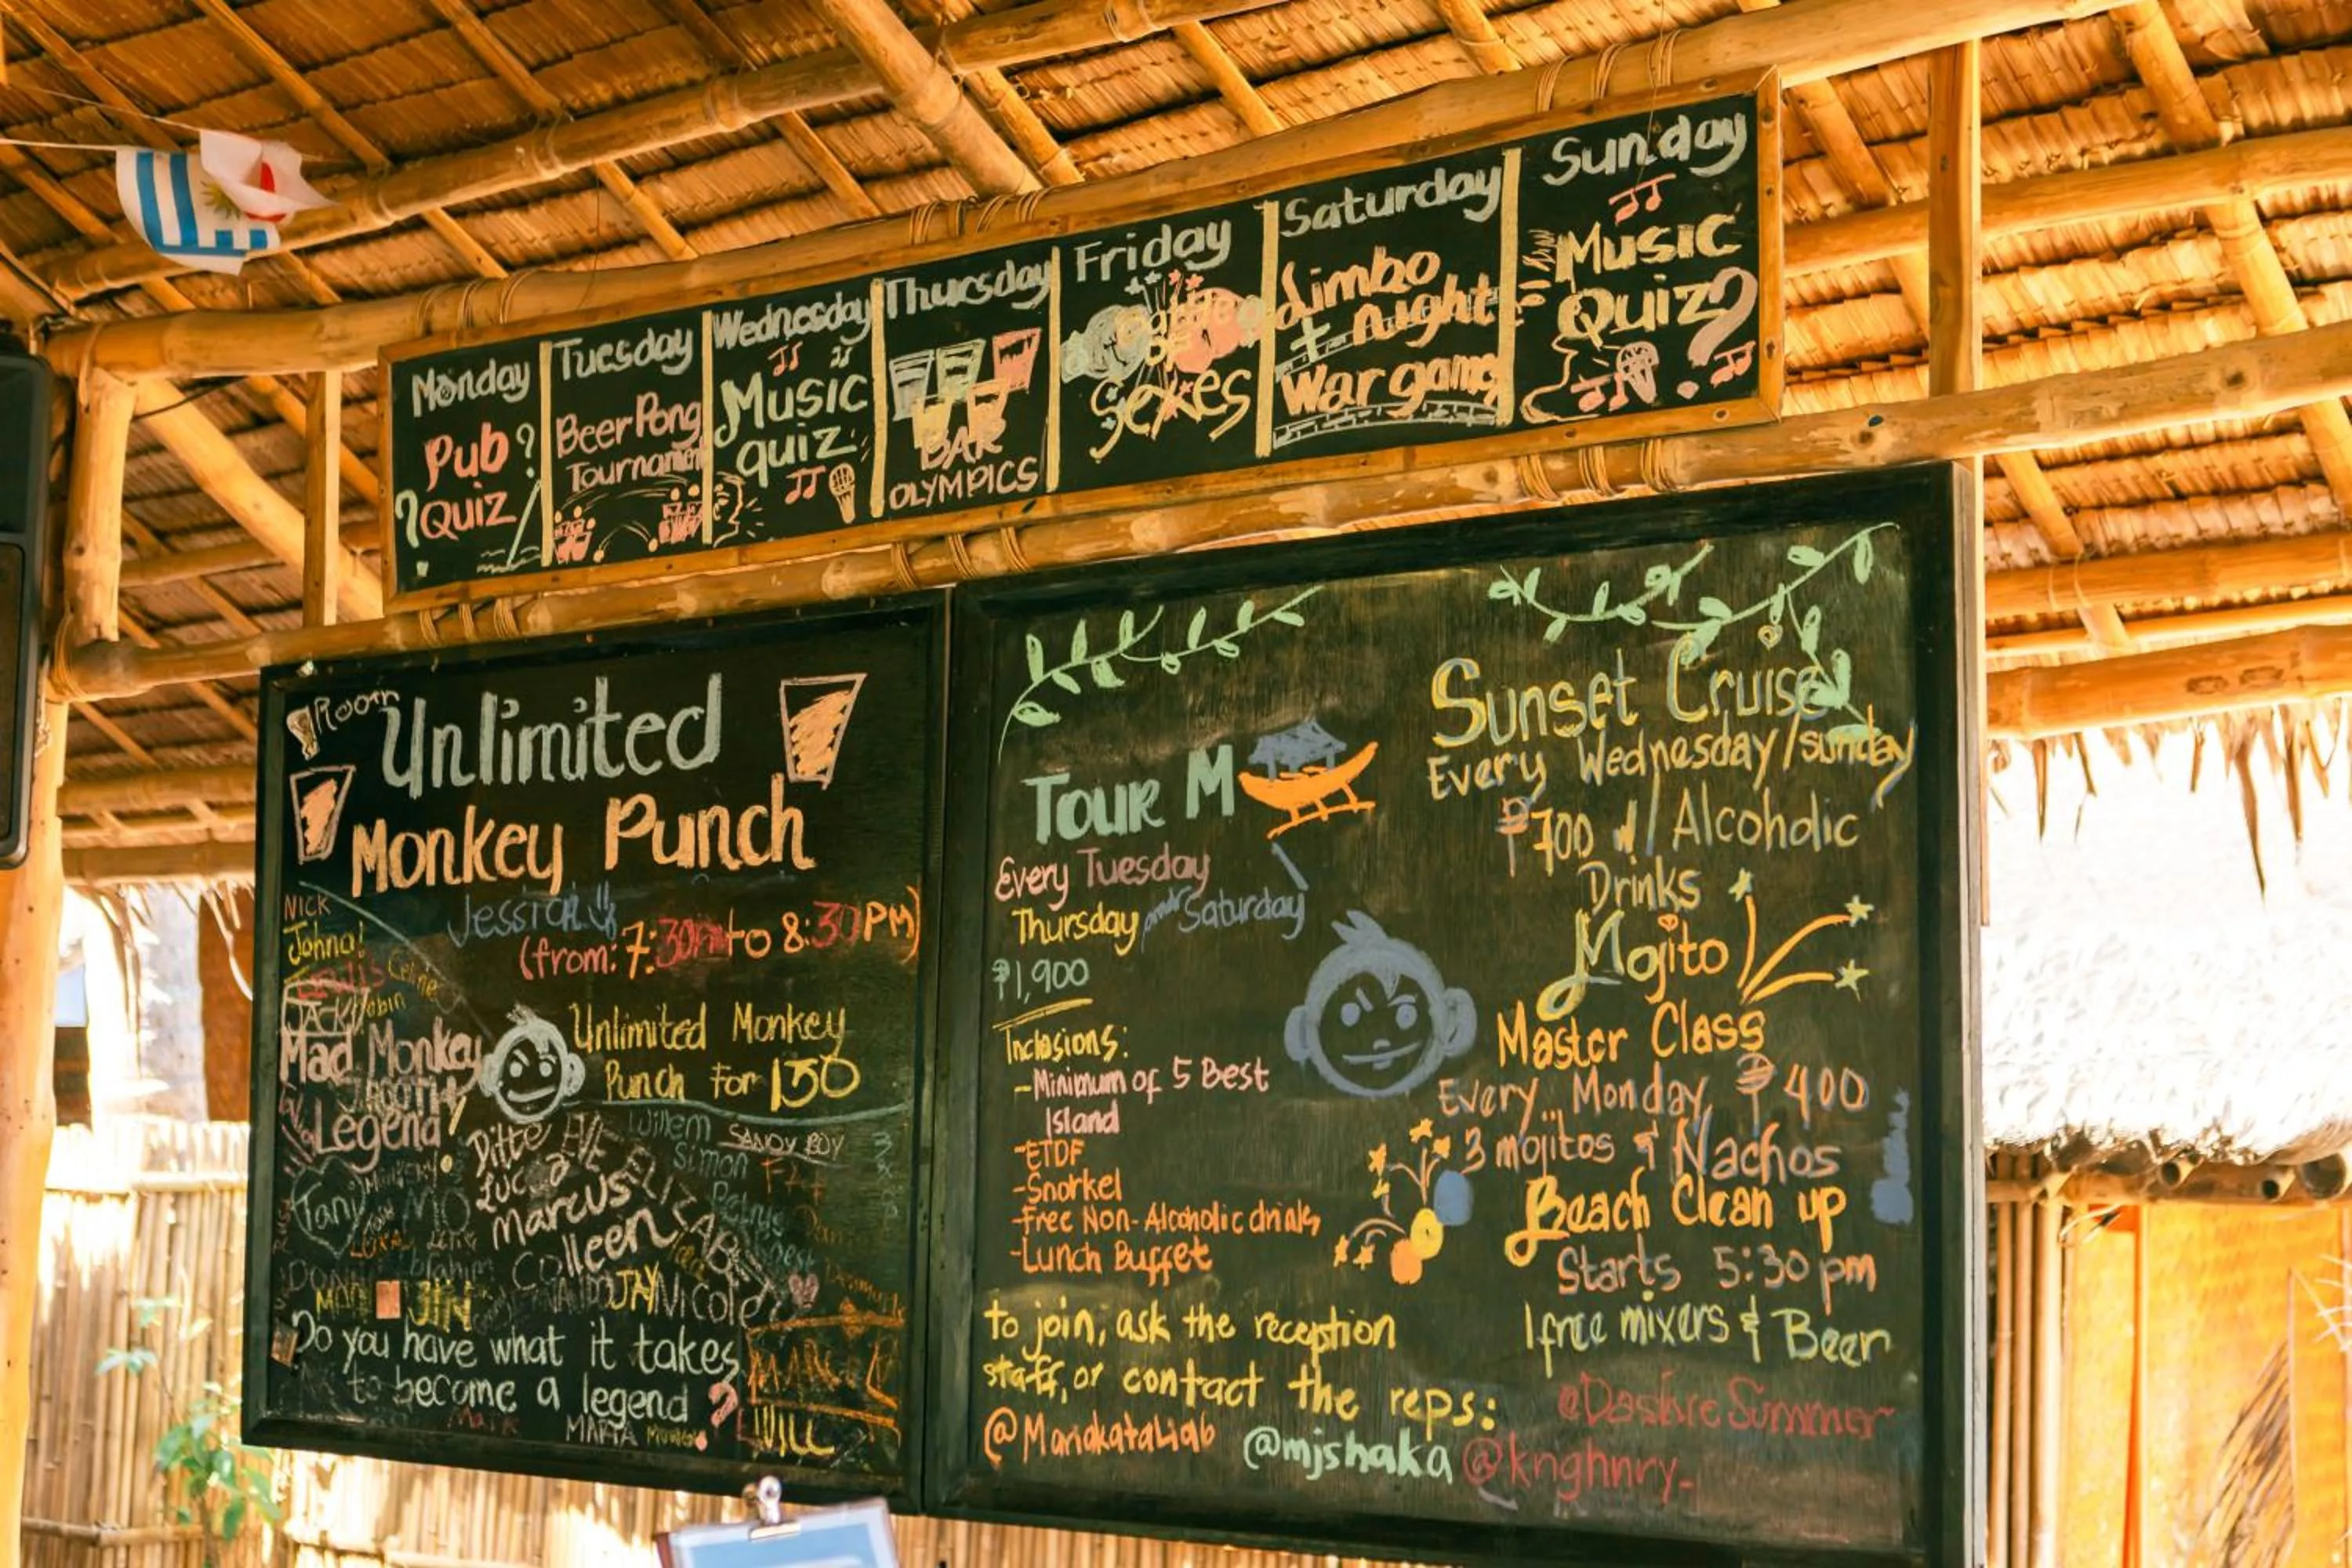 Monday
Pub
Quiz
Tuesday
Beer Pong
Tournament
Wednesday
Music
quiz
Thursday
BAR
OLYMPICS
Friday
Battle
of
Sexes
Saturday
Limbo
+ night
War game
Sunday
Music
Quiz?
Room
Unlimited
Monkey Punch
Jessica
(from: 7:30PM to 8:30PM)
NICK
Johna!
Celine
JACK
Robin
Mad Monkey
Legend
Unlimited Monkey
Punch For 150
Ditte EVE
Willem
SANDY BOY
Luca
ELIZABETH
Simon
Marcus
Tany
MO
Colleen
Ibrahim
JIN
JAY
Nicole
Do you have what it takes
to become a legend?
MARTA
WILL
Tour M
Every Tuesday
Thursday and Saturday
₱1,900
Inclusions:
-Minimum of 5 Best
Island
-ETDF
-Snorkel
-Free Non-Alcoholic drinks
-Lunch Buffet
to join, ask the reception
staff, or contact the reps:
@Mariakataliab @mjshaka @knghnry_
Sunset Cruise
Every Wednesday/sunday
₱700 w/ Alcoholic
Drinks
Mojito
Master Class
Every Monday ₱400
3 mojitos & Nachos
Beach Clean up
Starts 5:30 pm
1 free mixers & Beer
@DeskreSummer